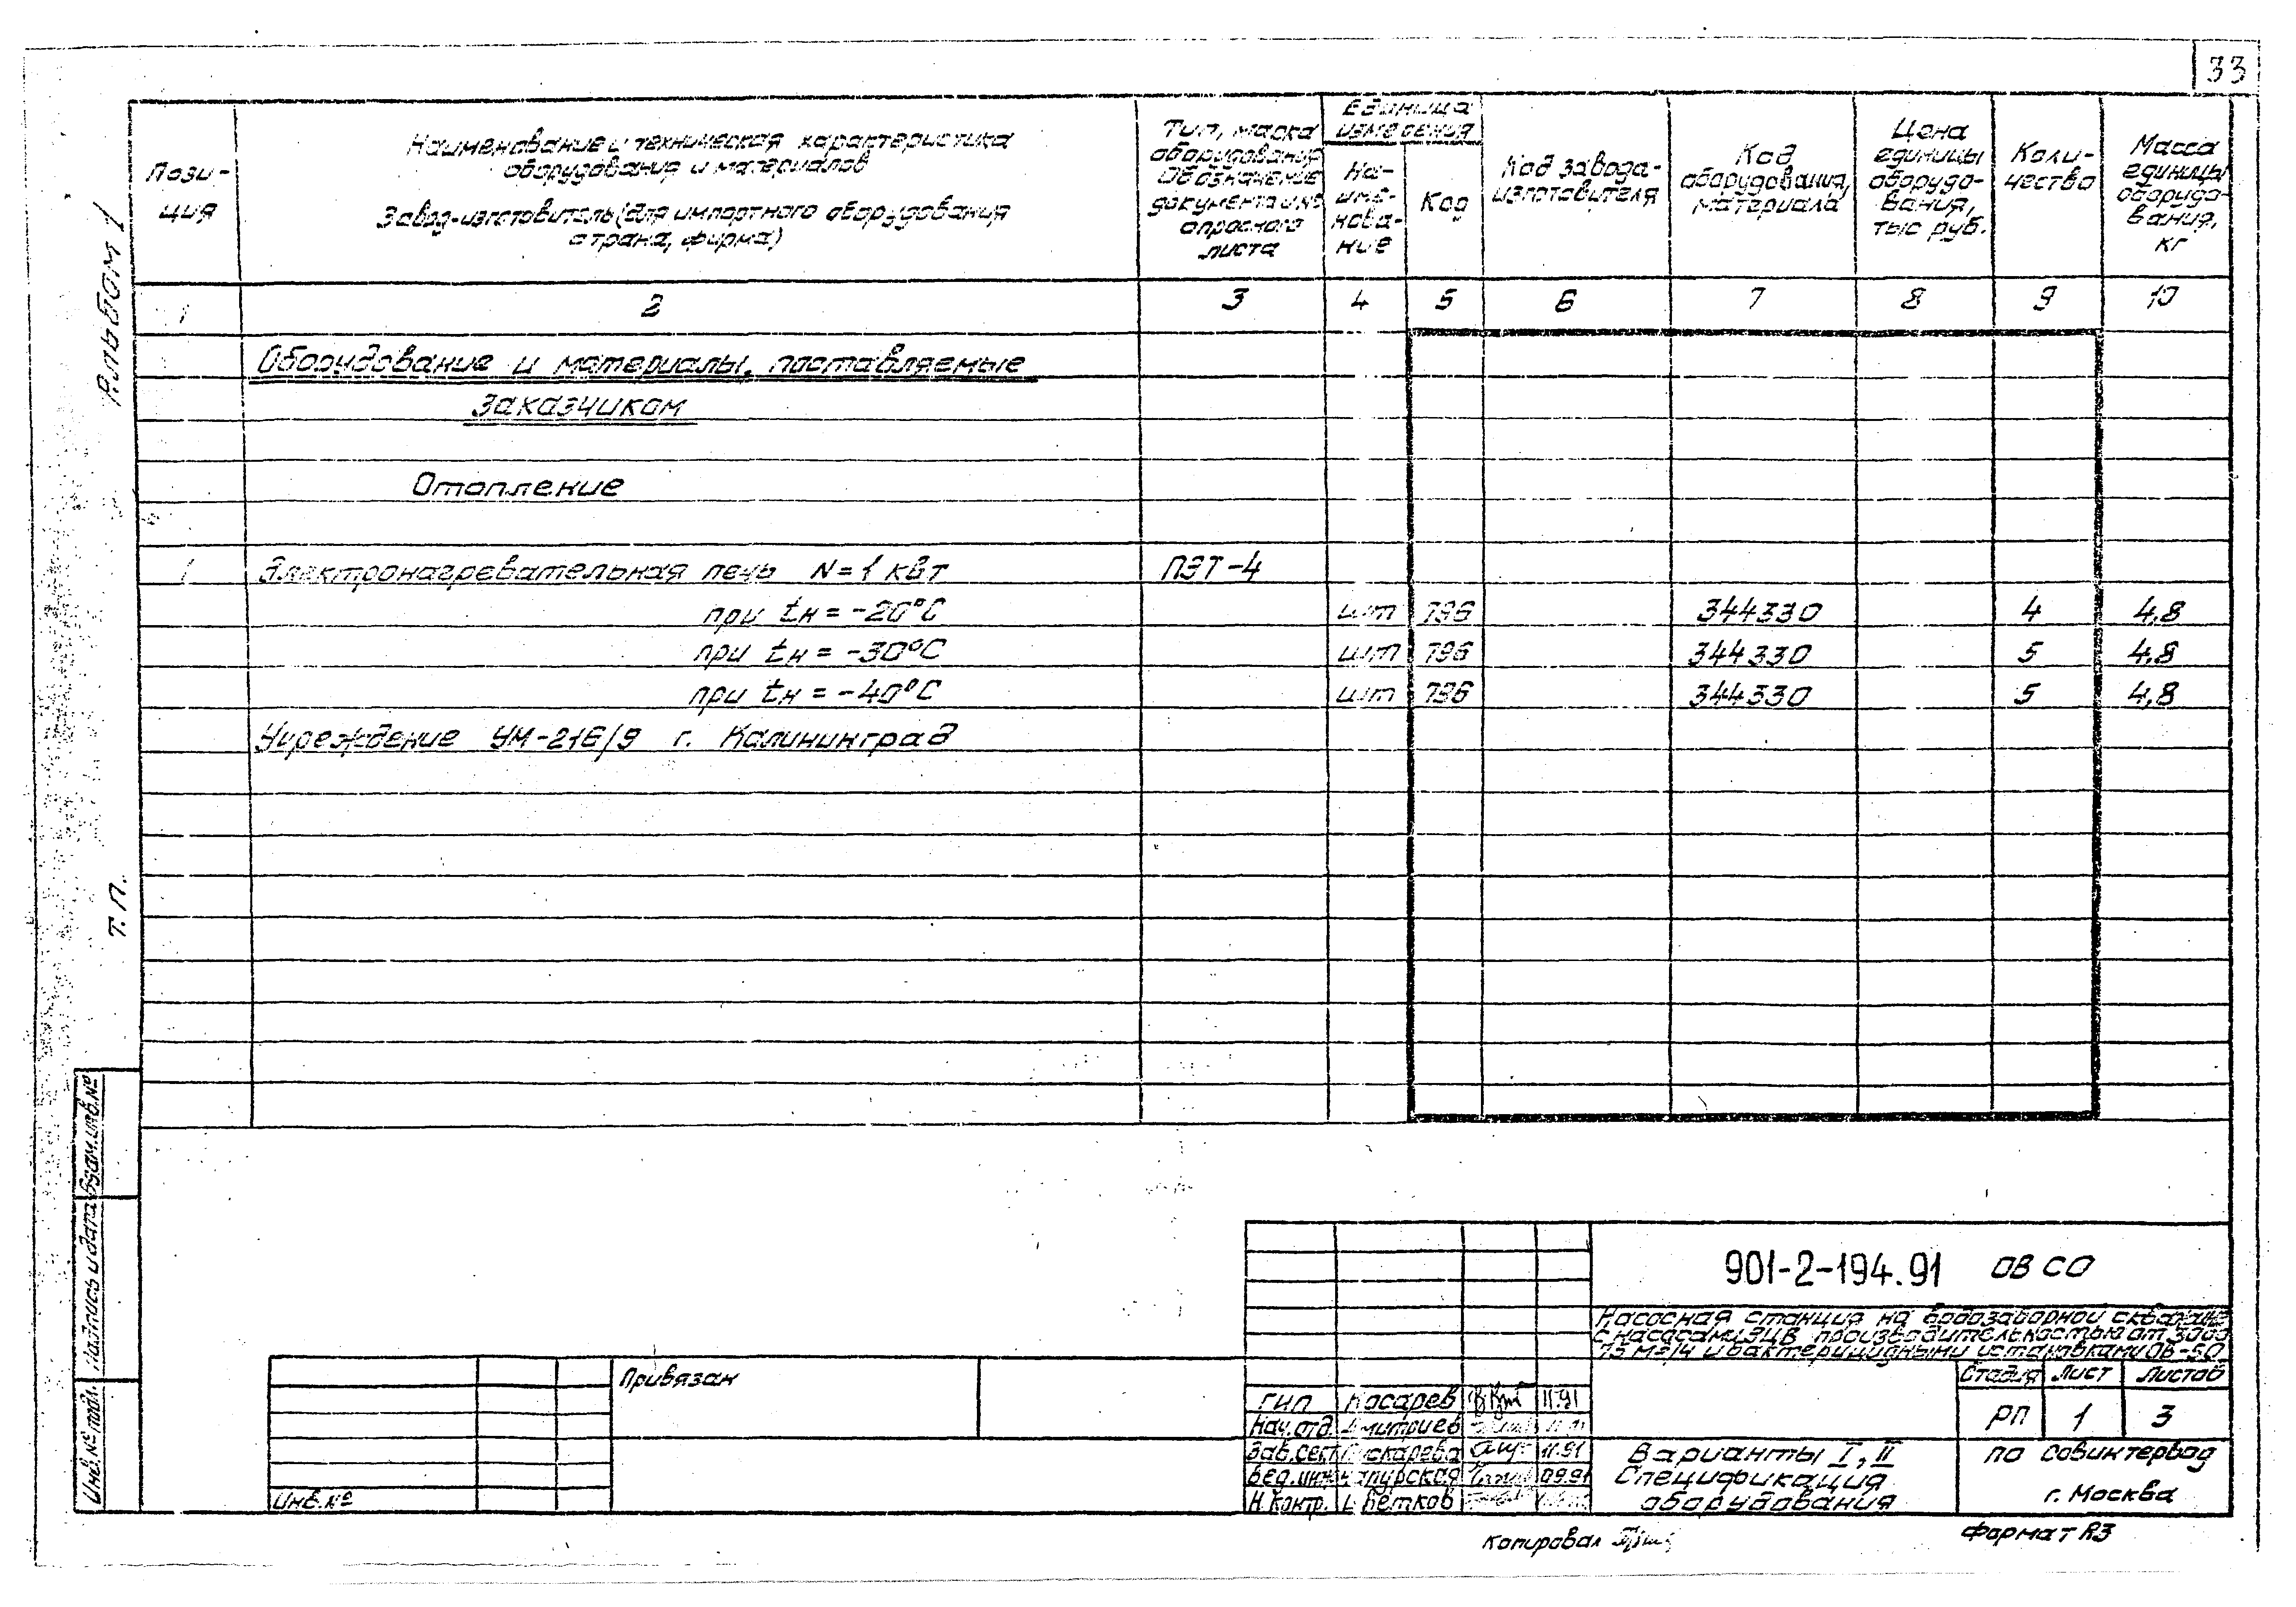 33
Альбом 1
Т.П.
Пози-
ция
Наименование и техническая характеристика
оборудования и материалов
Завод-изготовитель (для импортного оборудования
страна, фирма)
Тип, марка
оборудования
Обозначение
документа и №
опросного
листа
Единица
измерения
На-
име-
нова-
ние
Код
Код завода-
изготовителя
Код
оборудования,
материала
Цена
единицы
оборудо-
вания,
тыс руб.
Коли-
чество
Масса
единицы
оборудо-
вания,
кг
1 2 3 4 5 6 7 8 9 10
Оборудование и материалы, поставляемые
заказчиком
Отопление
1 Электронагревательная печь N=1 квт ПЭТ-4
при tн = -20°С шт 796 344330 4 4,8
при tн = -30°С шт 796 344330 5 4,8
при tн = -40°С шт 796 344330 5 4,8
Учреждение УМ-216/9 г. Калининград
Взам.инв.№
Подпись и дата
Инв.№ подл.
Привязан
Инв.№
901-2-194.91 ОВ СО
Насосная станция на водозаборной скважине
с насосами ЭЦВ производительностью от 30 до
75 м3/ч и бактерицидными установками ОВ-50
Стадия Лист Листов
РП 1 3
ГИП Косарев 11.91
Нач.отд. Дмитриев
Зав.сект. Пискарева 11.91
Вед.инж. 09.91
Н.контр.
Варианты I, II
Спецификация
оборудования
ПО Совинтервод
г. Москва
Копировал
Формат А3